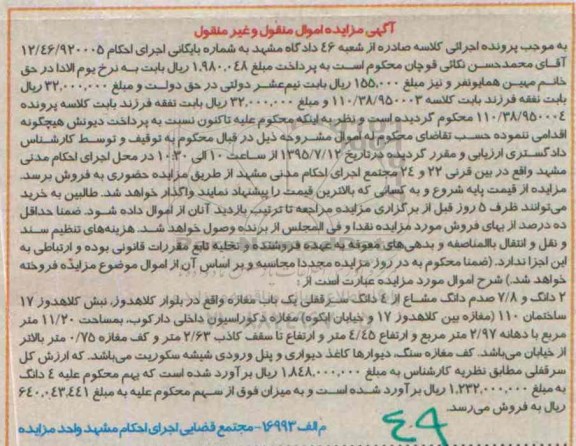 آگهی مزایده اموال منقول و غیر منقول
به موجب پرونده اجرائی کلاسه صادره از شعبه ۴۶ دادگاه مشهد به شماره بایگانی اجرای احکام ۱۲/۴۶/۹۲۰۰۰۵
آقای محمدحسن نکائی قوچان محکوم است به پرداخت مبلغ ۱.۹۸۰.۰۴۸ ریال بابت به نرخ یوم الادا در حق
خانم مهین همایونفر و نیز مبلغ ۱۵۵,۰۰۰ ریال بابت نیم‌عشر دولتی در حق دولت و مبلغ ۳۲,۰۰۰,۰۰۰ ریال
بابت نفقه فرزند بابت کلاسه ۱۱۰/۳۸/۹۵۰۰۰۳ و مبلغ ۳۲,۰۰۰,۰۰۰ ریال بابت نفقه فرزند بابت کلاسه پرونده
۱۱۰/۳۸/۹۵۰۰۰۴ محکوم گردیده است و نظر به اینکه محکوم علیه تاکنون نسبت به پرداخت دیونش هیچگونه
اقدامی ننموده حسب تقاضای محکوم له اموال مشروحه ذیل در قبال محکوم به توقیف و توسط کارشناس
دادگستری ارزیابی و مقرر گردید در تاریخ ۱۳۹۵/۷/۱۲ از ساعت ۱۰ الی ۱۰:۳۰ در محل اجرای احکام مدنی
مشهد واقع در بین قرنی ۲۲ و ۲۴ مجتمع اجرای احکام مدنی مشهد از طریق مزایده حضوری به فروش برسد.
مزایده از قیمت پایه شروع و به کسانی که بالاترین قیمت را پیشنهاد نمایند واگذار خواهد شد. طالبین به خرید
می‌توانند ظرف ۵ روز قبل از برگزاری مزایده مراجعه تا ترتیب بازدید آنان از اموال داده شود. ضمنا حداقل
ده درصد از بهای فروش مورد مزایده نقدا و فی المجلس از برنده وصول خواهد شد. هزینه‌های تنظیم سند
و نقل و انتقال بالمناصفه و بدهی‌های معوقه به عهده فروشنده و تخلیه تابع مقررات قانونی بوده و ارتباطی به
این اجرا ندارد. (ضمنا محکوم به در روز مزایده مجددا محاسبه و بر اساس آن از اموال موضوع مزایده فروخته
خواهد شد.) شرح اموال مورد مزایده عبارت است از:
۲ دانگ و ۷/۸ صدم دانگ مشاع از ۴ دانگ سرقفلی یک باب مغازه واقع در بلوار کلاهدوز، نبش کلاهدوز ۱۷
ساختمان ۱۱۰ (مغازه بین کلاهدوز ۱۷ و خیابان ابکوه) مغازه دکوراسیون داخلی دارکوب، بمساحت ۱۱/۲۰ متر
مربع با دهانه ۲/۹۷ متر مربع و ارتفاع ۴/۴۵ متر و ارتفاع تا سقف کاذب ۲/۶۳ متر و کف مغازه ۰/۷۵ متر بالاتر
از خیابان می‌باشد. کف مغازه سنگ، دیوارها کاغذ دیواری و پنل ورودی شیشه سکوریت می‌باشد. که ارزش کل
سرقفلی مطابق نظریه کارشناس به مبلغ ۱,۸۴۸,۰۰۰,۰۰۰ ریال برآورد شده است که بهم محکوم علیه ۴ دانگ
به مبلغ ۱,۲۳۲,۰۰۰,۰۰۰ ریال برآورد شده است و به میزان فوق از سهم محکوم علیه به مبلغ ۶۴۰,۰۴۳,۴۴۱
ریال به فروش می‌رسد.
م الف ۱۶۹۹۳ - مجتمع قضایی اجرای احکام مشهد واحد مزایده
۴۹